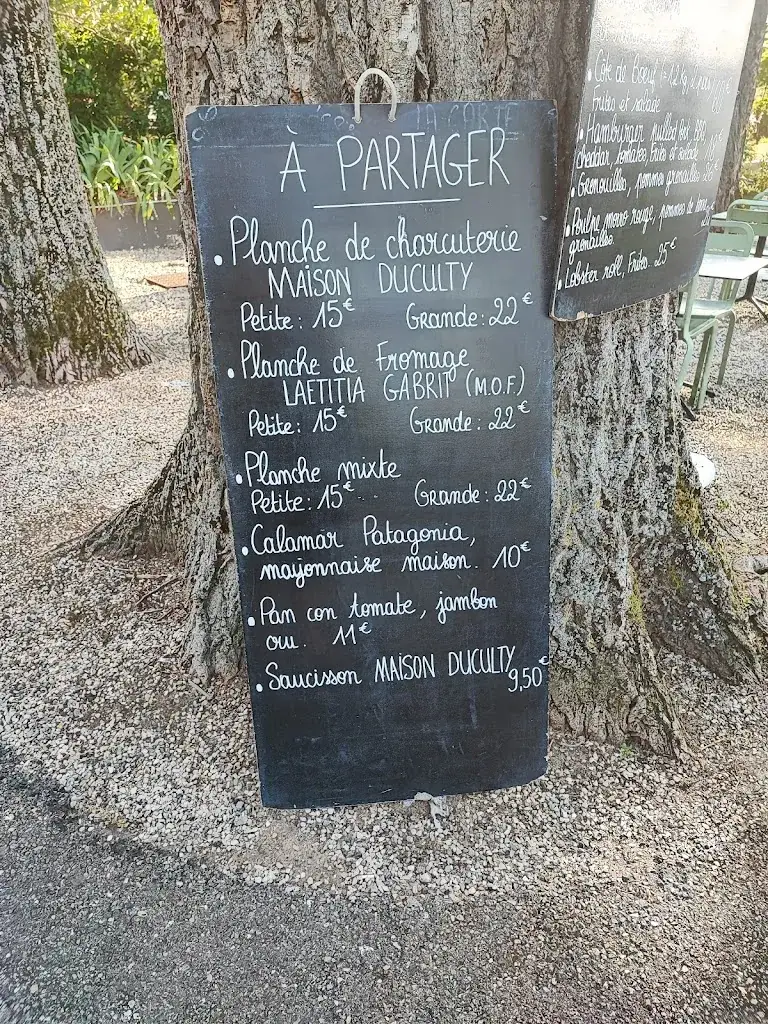 À PARTAGER
• Planche de charcuterie
MAISON DUCULTY
Petite : 15€ Grande : 22€
• Planche de Fromage
LAETITIA GABRIT (M.O.F.)
Petite : 15€ Grande : 22€
• Planche mixte
Petite : 15€ Grande : 22€
• Calamar Patagonia,
mayonnaise maison. 10€
• Pan con tomate, jambon
cru. 11€
• Saucisson MAISON DUCULTY
9,50€
• Côte de Boeuf
Frites et salade
• Hamburger pulled
cheddar, tomates, frites et salade
• Grenouilles, pommes grenailles
• Poulpe rouge, pommes de terre
grenailles.
• Lobster roll, Frites. 25€